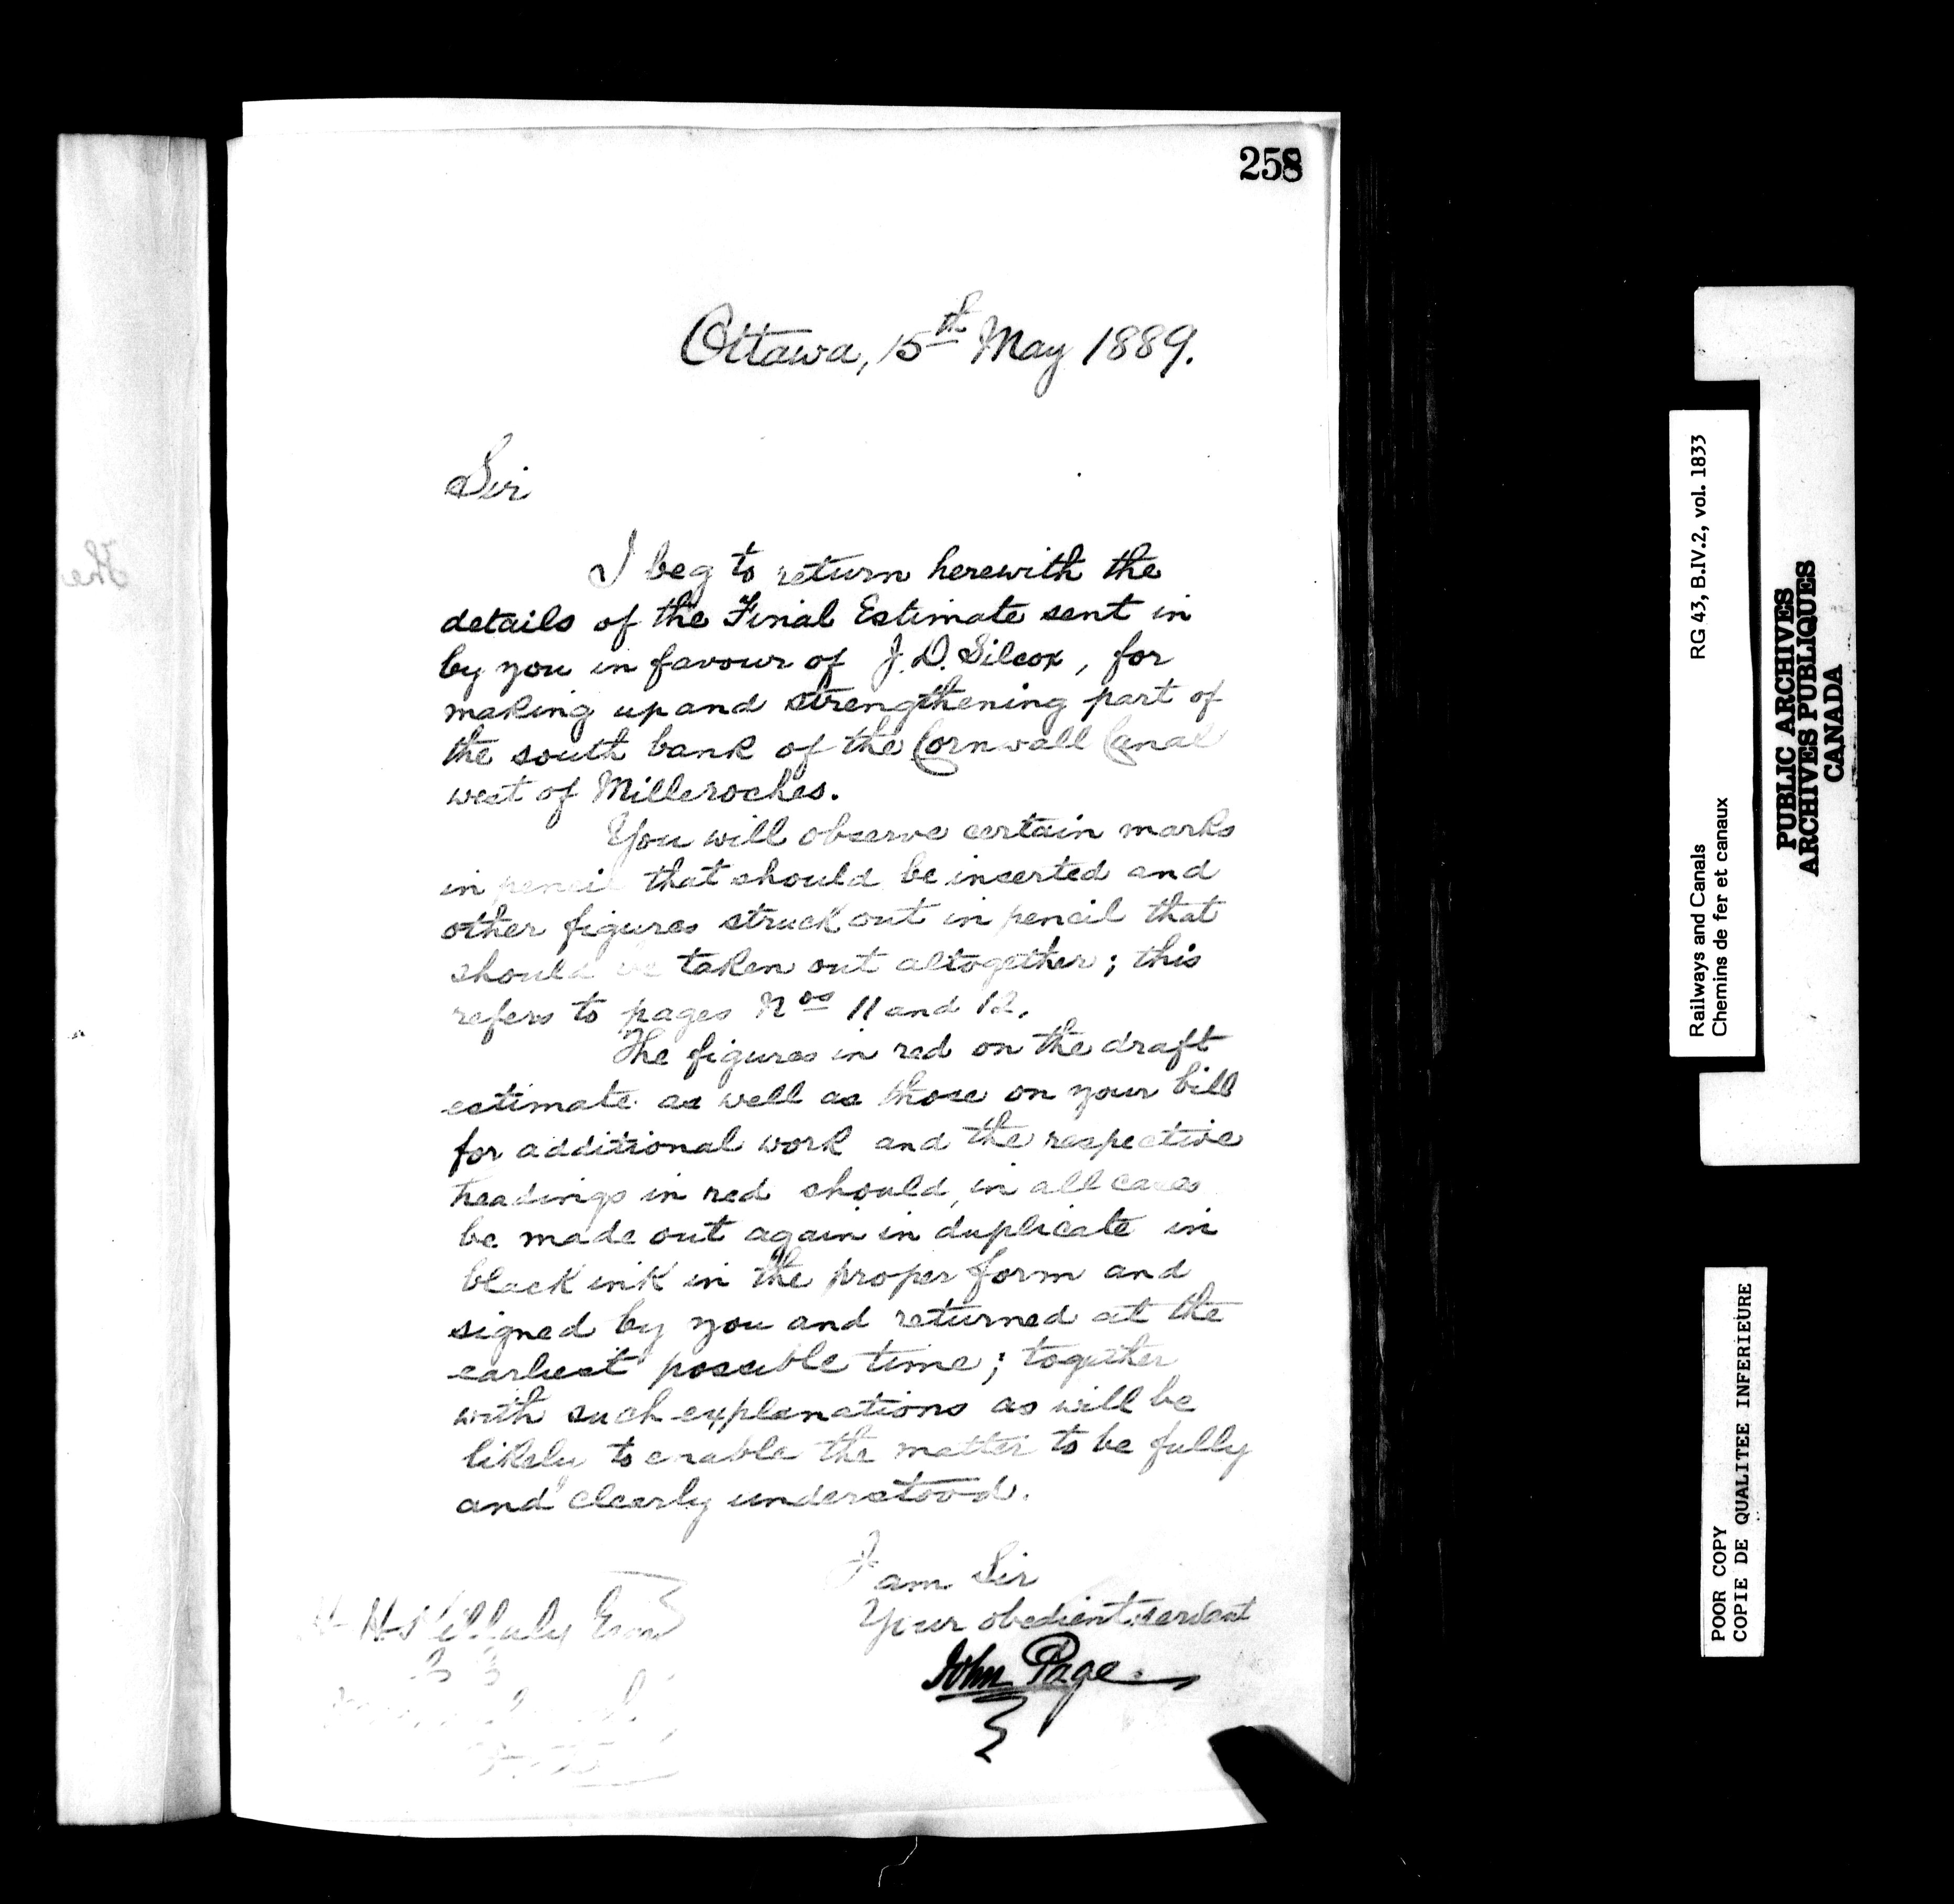 258
Ottawa, 15th May 1889.
Sir
I beg to return herewith the
details of the Final Estimate sent in
by you in favour of J. D. Silcox, for
making up and strengthening part of
the south bank of the Cornwall Canal
west of Milleroches.
You will observe certain marks
in pencil that should be inserted and
other figures struck out in pencil that
should be taken out altogether; this
refers to pages Nos 11 and 12.
The figures in red on the draft
estimate as well as those on your bill
for additional work and the respective
headings in red should, in all cases
be made out again in duplicate in
black ink in the proper form and
signed by you and returned at the
earliest possible time; together
with such explanations as will be
likely to enable the matter to be fully
and clearly understood.
I am Sir
Your obedient servant
John Page
H. H. Killaly Esqr
Railways and Canals
Chemins de fer et canaux
RG 43, B.IV.2, vol. 1833
PUBLIC ARCHIVES
ARCHIVES PUBLIQUES
CANADA
POOR COPY
COPIE DE QUALITEE INFERIEURE